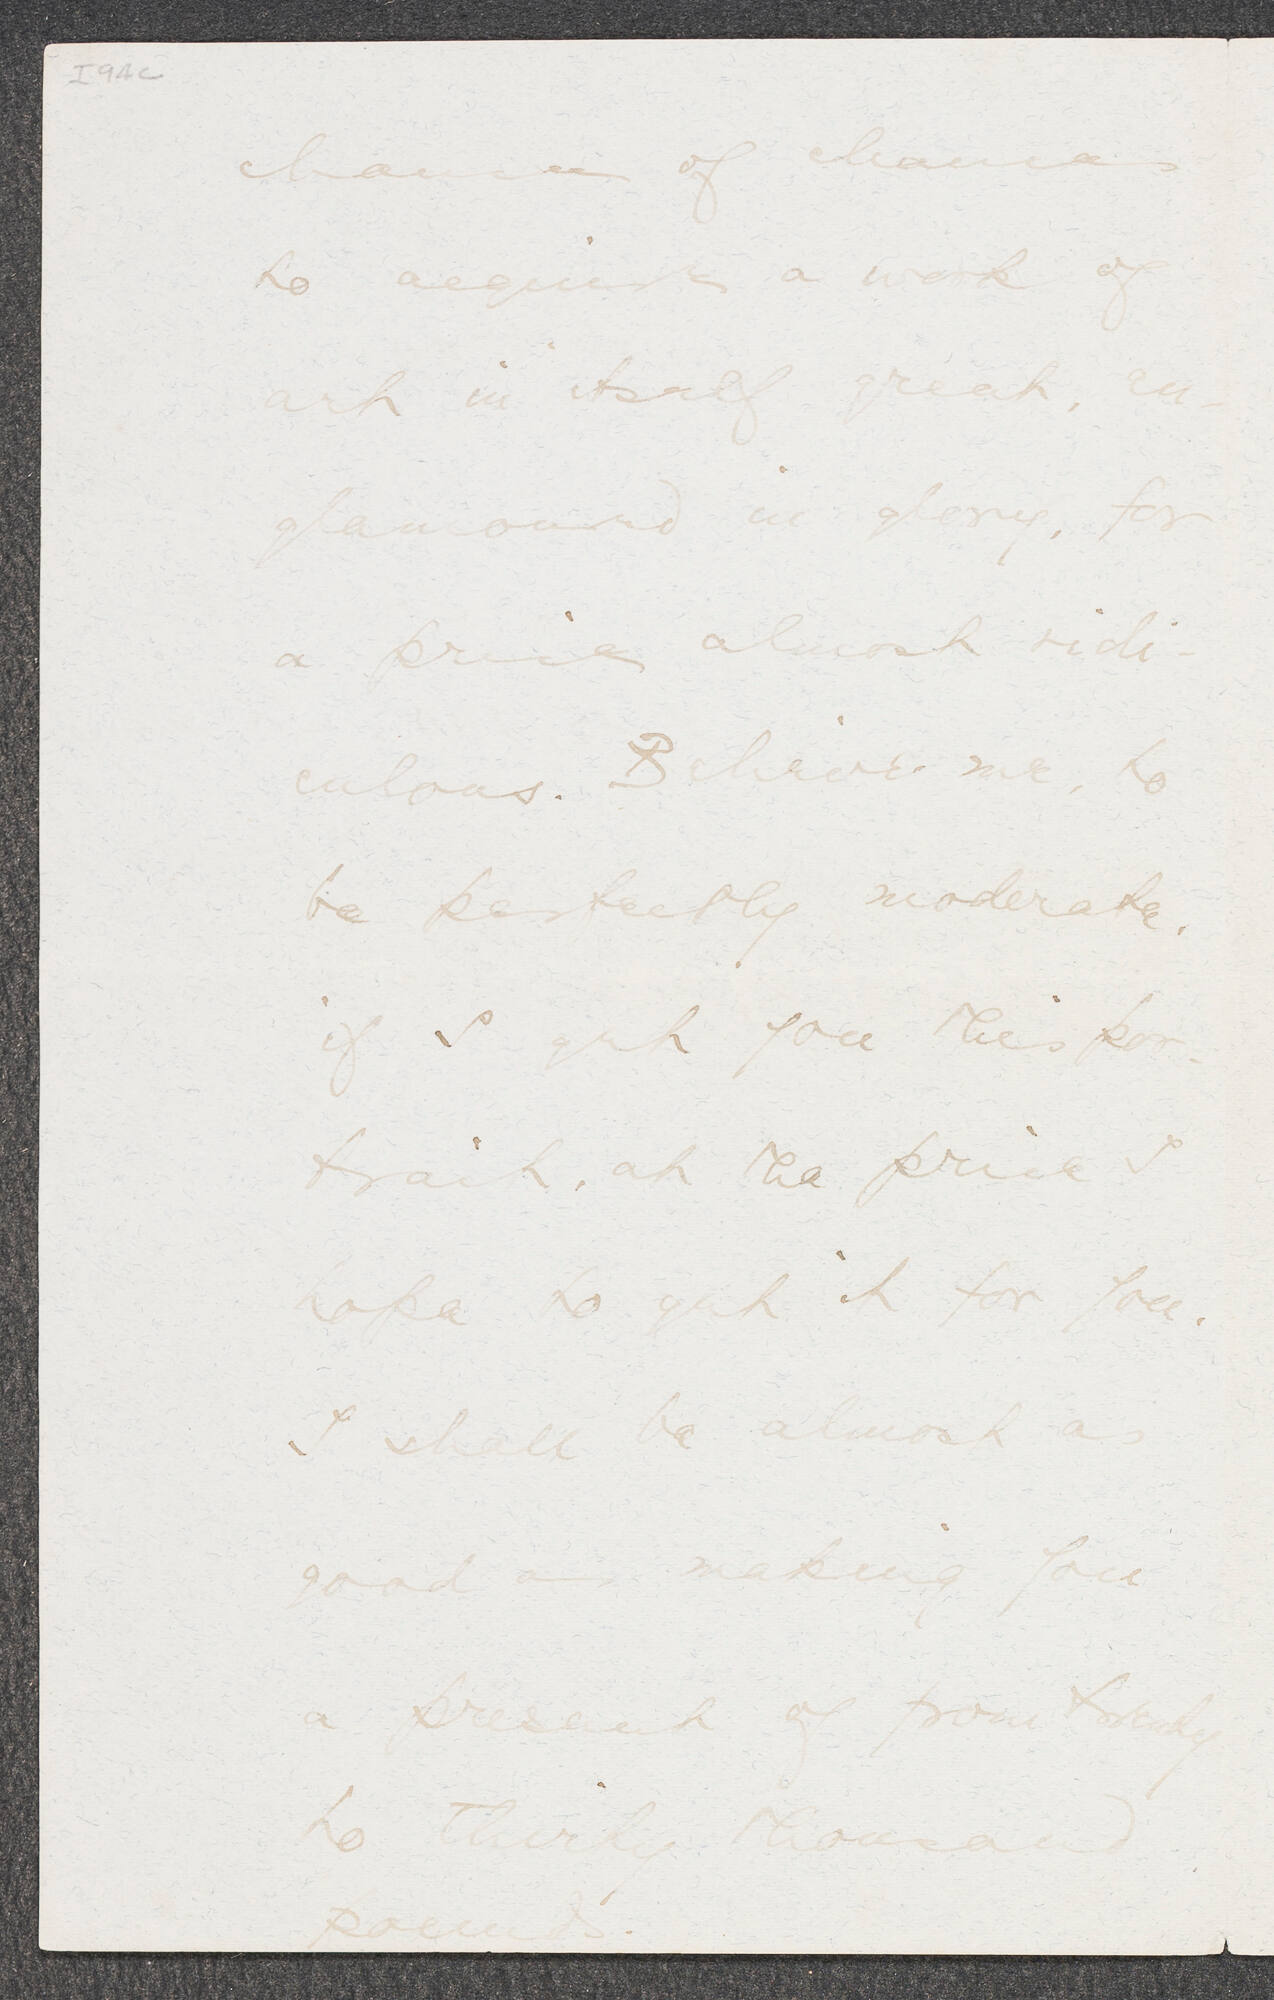 I94c
chance of chances
to acquire a work of
art in itself great, en-
glamoured in glory, for
a price almost ridi-
culous. Believe me, to
be perfectly moderate,
if I get you this por-
trait, at the price I
hope to get it for you,
I shall be almost as
good as making you
a present of from twenty
to thirty thousand
pounds.